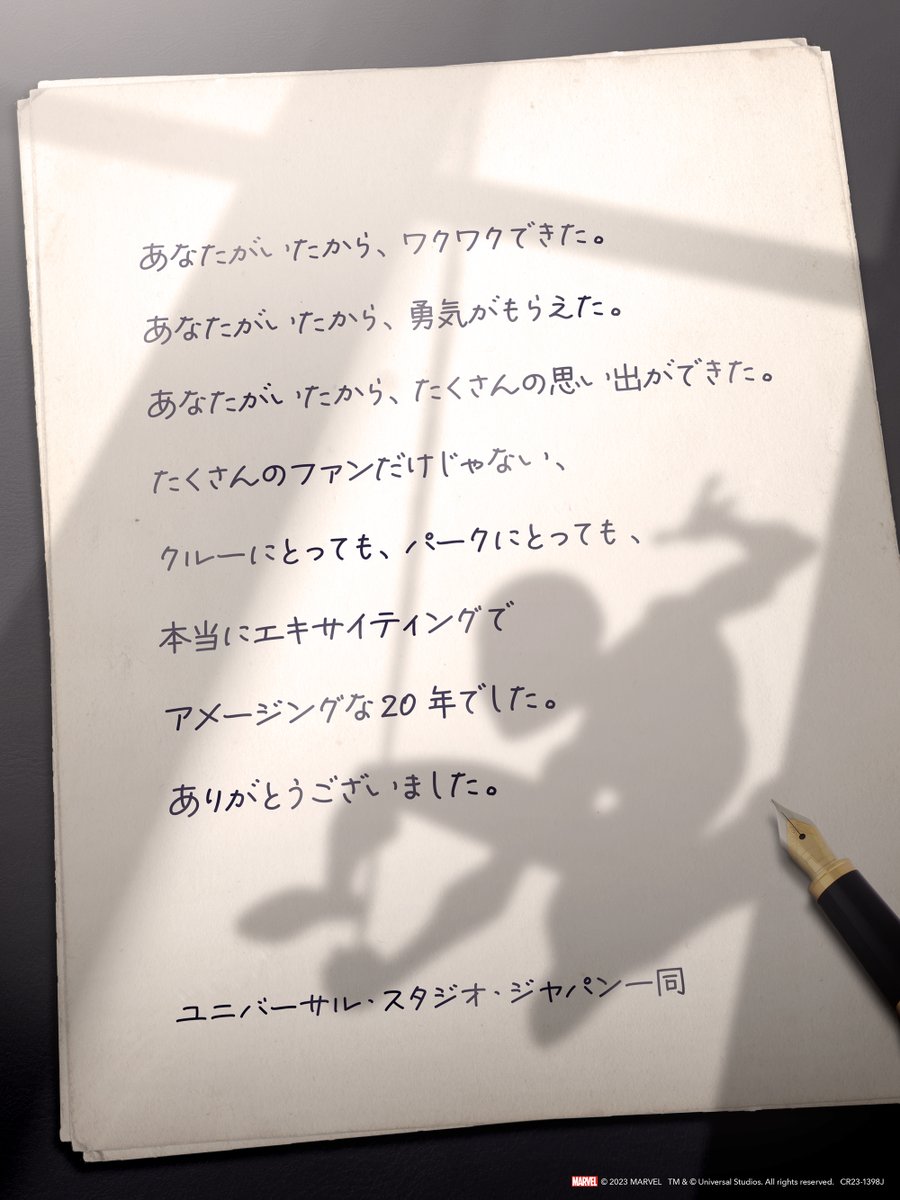 あなたがいたから、ワクワクできた。
あなたがいたから、勇気がもらえた。
あなたがいたから、たくさんの思い出ができた。
たくさんのファンだけじゃない、
クルーにとっても、パークにとっても、
本当にエキサイティングで
アメージングな20年でした。
ありがとうございました。
ユニバーサル・スタジオ・ジャパン一同
MARVEL © 2023 MARVEL TM & © Universal Studios. All rights reserved. CR23-1398J